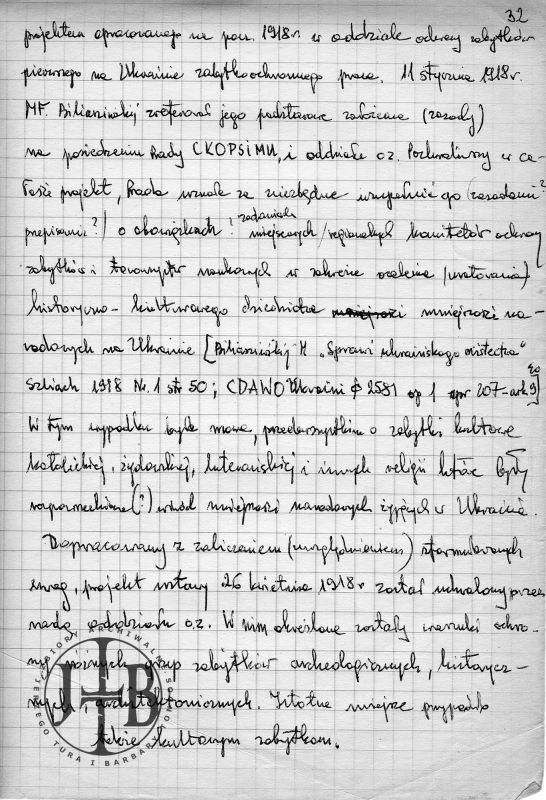 32
projektem opracowanego na pocz. 1918 r. w oddziale ochrony zabytków
pierwszego na Ukrainie zabytkoochronnego prawa. 11 stycznia 1918 r.
MF. Biliaszivśkij zreferował jego podstawowe założenia (zasady)
na posiedzeniu Rady CKOPSiMU, i oddziale o.z. Pochwaliwszy w ca-
łości projekt, Rada uznała za niezbędne uzupełnić go (zasadami?
przepisami?) o obowiązkach! zadaniach miejscowych/regionalnych komitetów ochrony
zabytków i towarzystw naukowych w zakresie ocalenia (uratowania)
historyczno-kulturowego dziedzictwa mniejszości na-
rodowych na Ukrainie [Biliaszivśkij M "Sprawi ukrainśkogo mistectwa"
Szliach 1918 Nr. 1 str 50; CDAWO Ukraini f 2581 op 1 spr 207-ark 9]
W tym wypadku była mowa, przedewszystkim o zabytki kultowe
katolickiej, żydowskiej, luterańskiej i innych religii które były
rozpowszechnione (?) wśród mniejszości narodowych żyjących w Ukrainie.
Dopracowany z zaliczeniem (uwzględnieniem) sformułowanych
uwag, projekt ustawy 26 kwietnia 1918 r został uchwalony przez
radę oddziału o.z. W nim określone zostały warunki ochro-
ny różnych grup zabytków archeologicznych, history-
cznych, architektonicznych. Istotne miejsce przypadło
także kultowym zabytkom.
ZBIORY ARCHIWALNE
JB
TURA I BARBARY